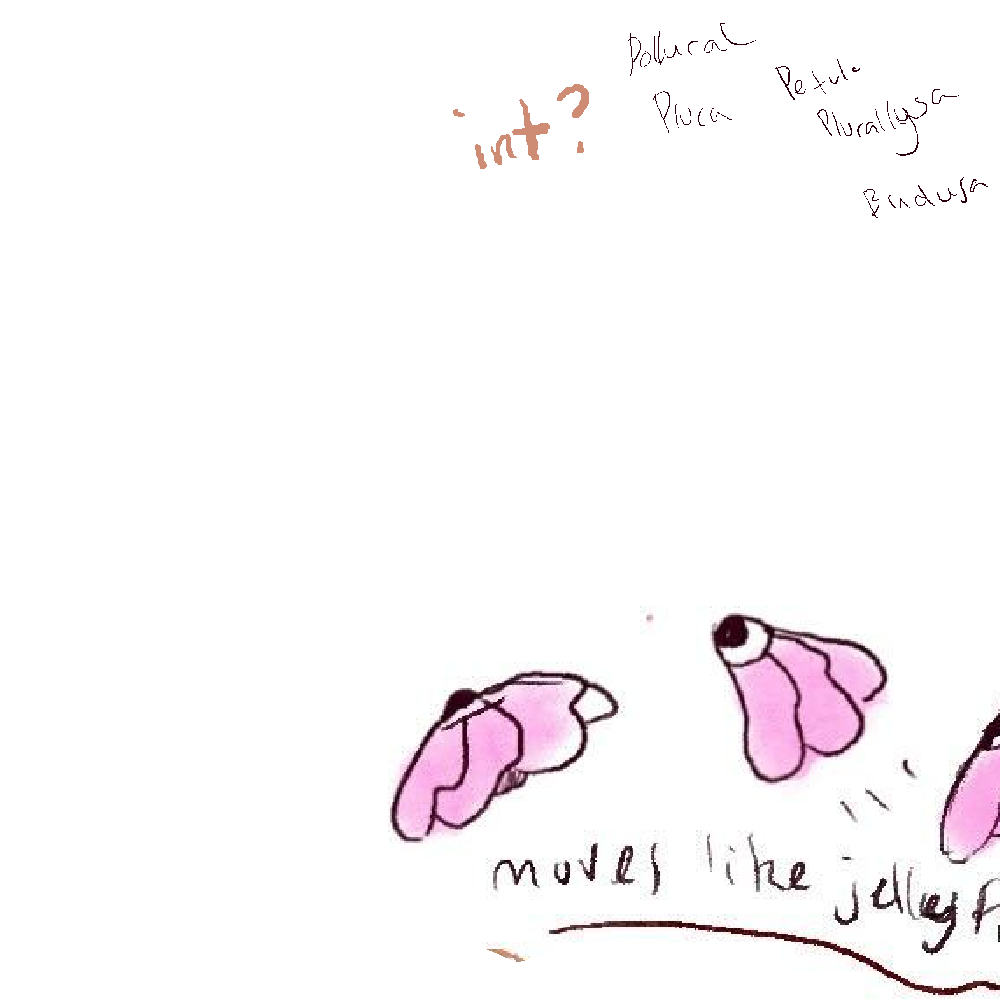 Pollural
int?
Petula
Pluca
Plurallysa
Eudusa
moves like jellyf